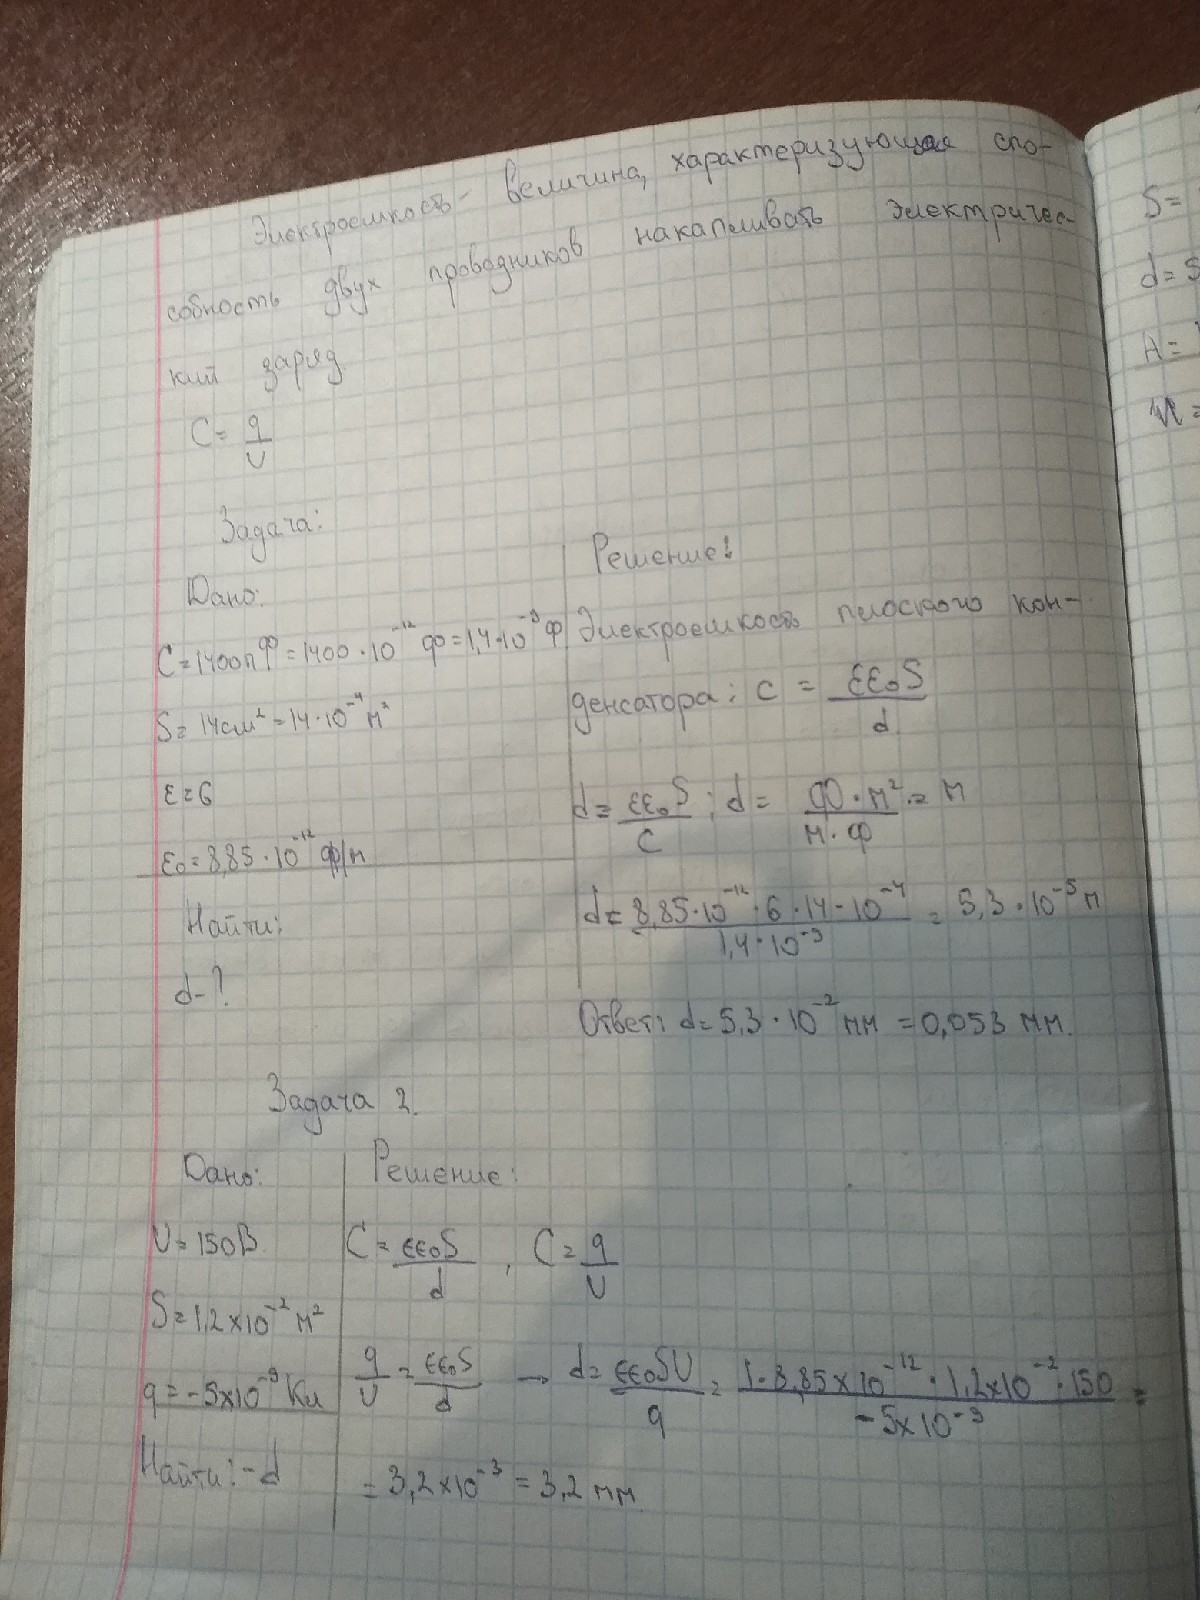 Электроемкость - величина, характеризующая спо-
собность двух проводников накапливать электричес-
кий заряд
C = q/U
Задача:
Дано:
C = 1400 пФ = 1400 · 10⁻¹² ф = 1,4 · 10⁻⁹ ф
S = 14 см² = 14 · 10⁻⁴ м²
ε = 6
ε₀ = 8,85 · 10⁻¹² ф/м
Найти:
d - ?
Решение:
Электроемкость плоского кон-
денсатора: c = εε₀S/d
d = εε₀S/C ; d = Ф · м²/м · ф = м
d = 8,85 · 10⁻¹² · 6 · 14 · 10⁻⁴/1,4 · 10⁻⁹ = 5,3 · 10⁻⁵ м
Ответ: d = 5,3 · 10⁻² мм = 0,053 мм.
Задача 2.
Дано:
U = 150 В
S = 1,2 x 10⁻² м²
q = -5 x 10⁻⁹ Кл
Найти: - d
Решение:
C = εε₀S/d , C = q/U
q/U = εε₀S/d → d = εε₀SU/q = 1 · 8,85 x 10⁻¹² · 1,2 x 10⁻² · 150/-5 x 10⁻⁹ =
= 3,2 x 10⁻³ = 3,2 мм
S =
d = 5
A =